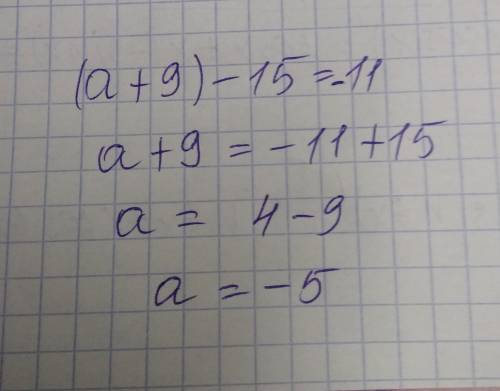 (a + 9) - 15 = -11
a + 9 = - 11 + 15
a = 4 - 9
a = - 5